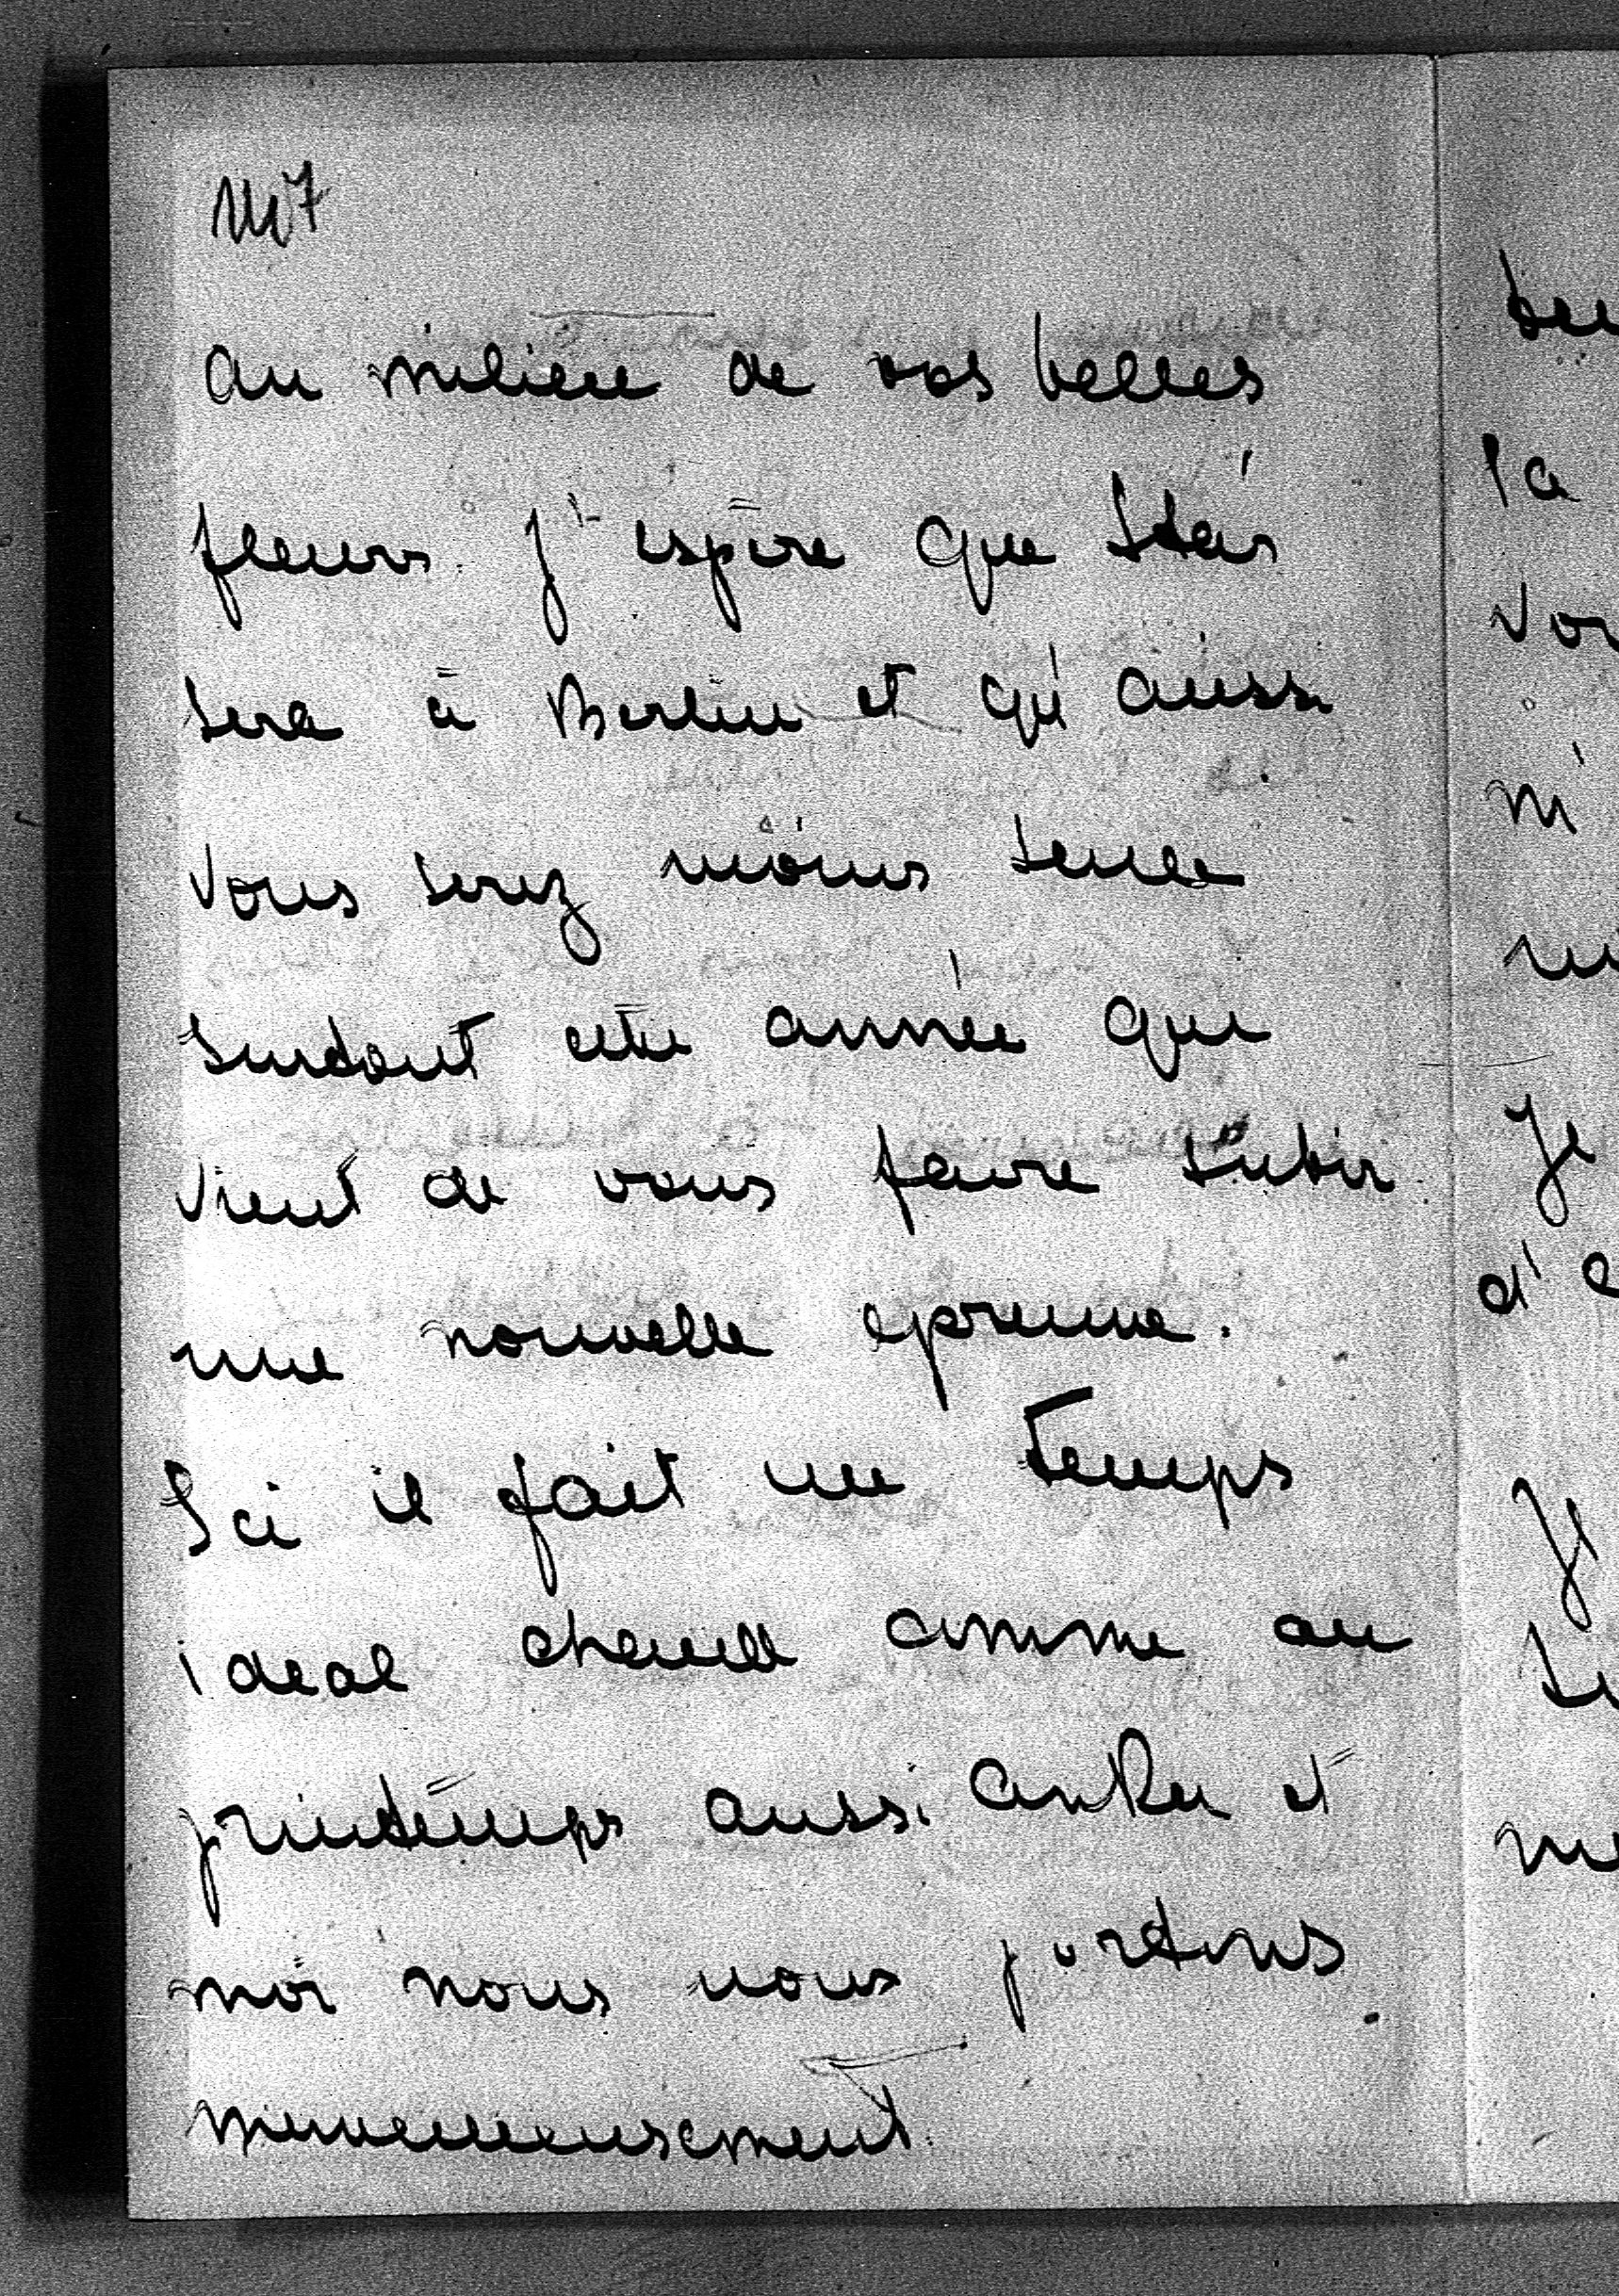 au milieu de vos belles
fleurs. j'espère que
sera à Berlin et qu'aussi
vous serez moins seule
surtout cette année qui
vient de vous faire subir
une nouvelle epreuve.
Ici il fait un temps
ideal chaud comme au
printemps aussi et
moi nous nous portons
merveilleusement.